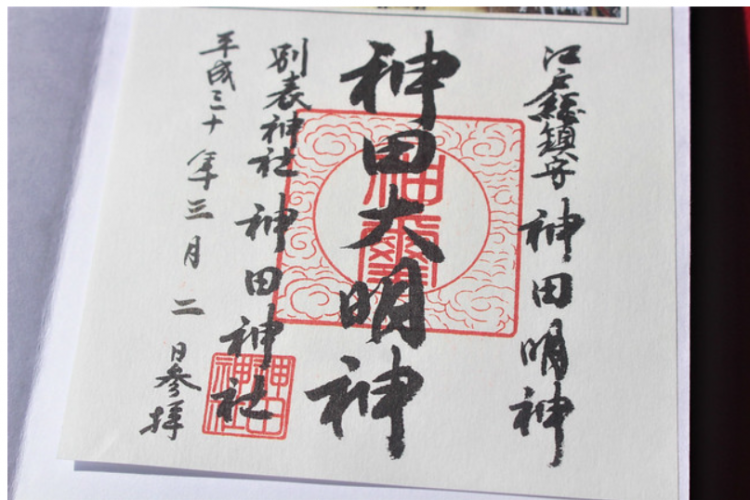 江戸総鎮守 神田明神
神田大明神
神璽
別表神社 神田神社
神田神社
平成三十年三月二日参拝